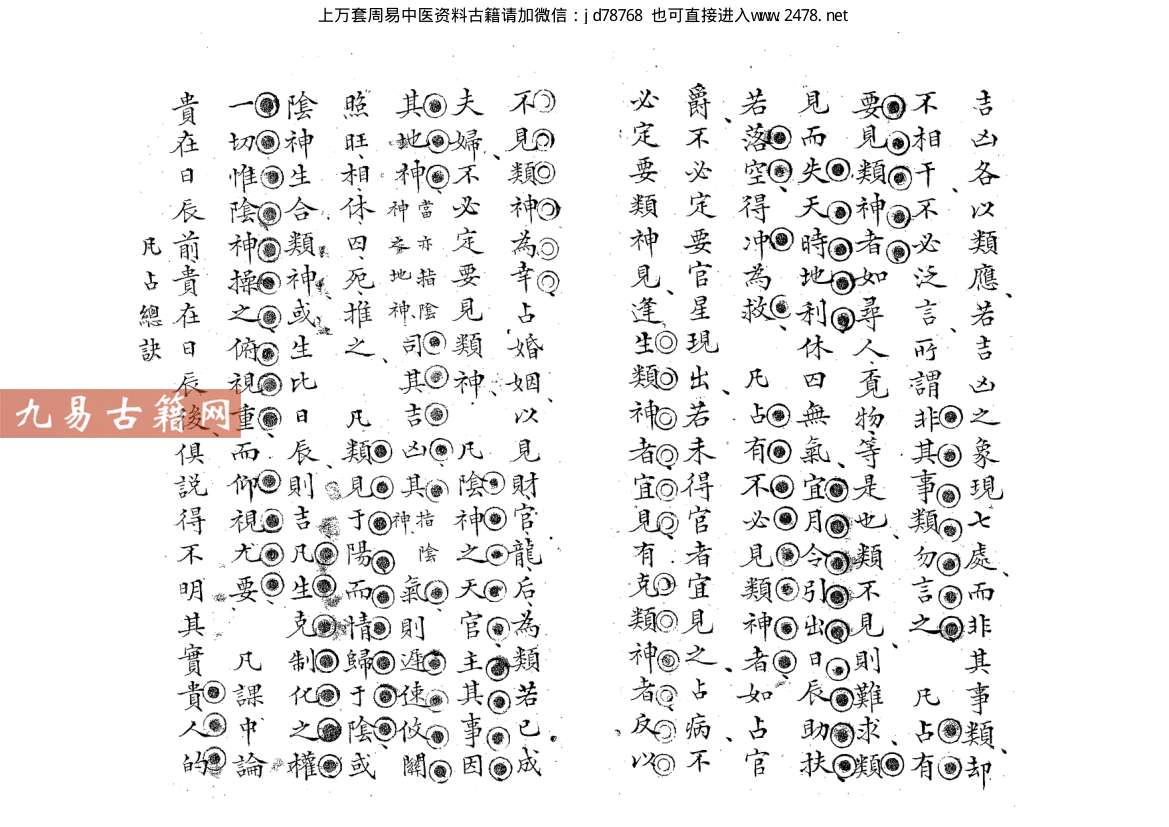 上万套周易中医资料古籍请加微信：jd78768 也可直接进入www.2478.net
吉凶各以類應若吉凶之象現七處而非其事類却
不相干不必泛言所謂非其事類勿言之　凡占有
要見類神者如尋人覓物等是也類不見則難求類
見而失天時地利休囚無氣宜月令引出日辰助扶
若落空得冲為救　凡占有不必見類神者如占官
爵不必定要官星現出若未得官者宜見之占病不
必定要類神見逢生類神者宜見有克類神者反以
不見類神為幸占婚姻以見財官龍后為類若已成
夫婦不必定要見類神　凡陰神之天官主其事因
其地神當亦指陰神之地神司其吉凶其指陰神氣則遲速攸關
照旺相休囚死推之　凡類見于陽而情歸于陰或
陰神生合類神或生比日辰則吉凡生克制化之權
一切惟陰神操之俯視重而仰視尤要　凡課中論
貴在日辰前貴在日辰後俱説得不明其實貴人的
凡占總訣
九易古籍网